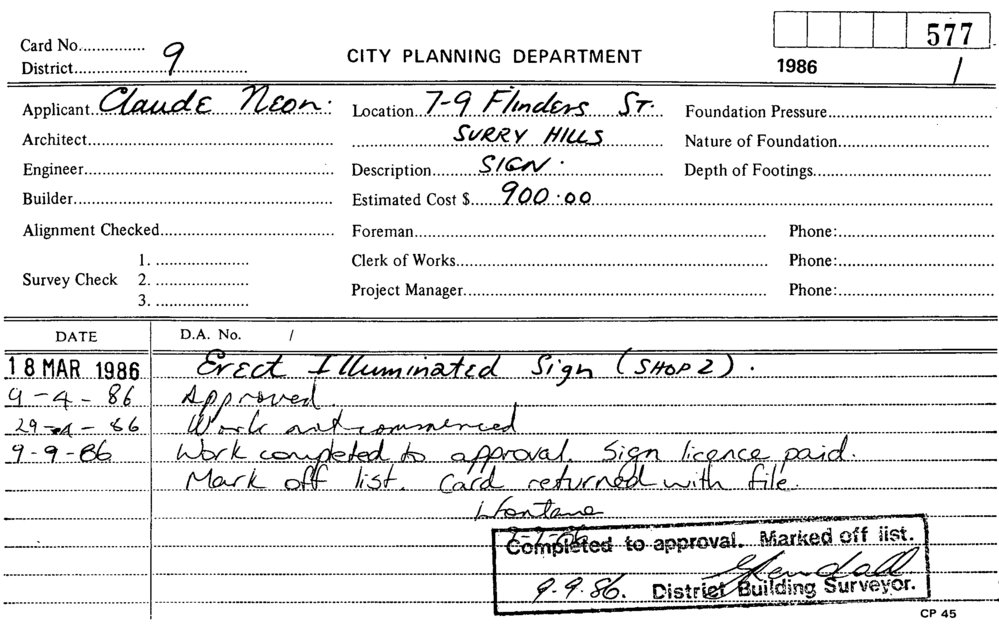 577
Card No...............
District........9........
CITY PLANNING DEPARTMENT
1986 /
Applicant. Claude Neon. Location. 7-9 Flinders St. Foundation Pressure
Architect SURRY HILLS Nature of Foundation
Engineer Description SIGN. Depth of Footings
Builder Estimated Cost $ 900.00
Alignment Checked Foreman Phone:
1. Clerk of Works Phone:
Survey Check 2.
3. Project Manager Phone:
DATE D.A. No. /
18 MAR 1986 Erect Illuminated Sign (SHOP 2).
9-4-86 Approved.
29-4-86 Work not commenced
9-9-86 Work completed to approval. Sign licence paid.
Mark off list. Card returned with file.
Completed to approval. Marked off list.
9.9.86. District Building Surveyor.
CP 45